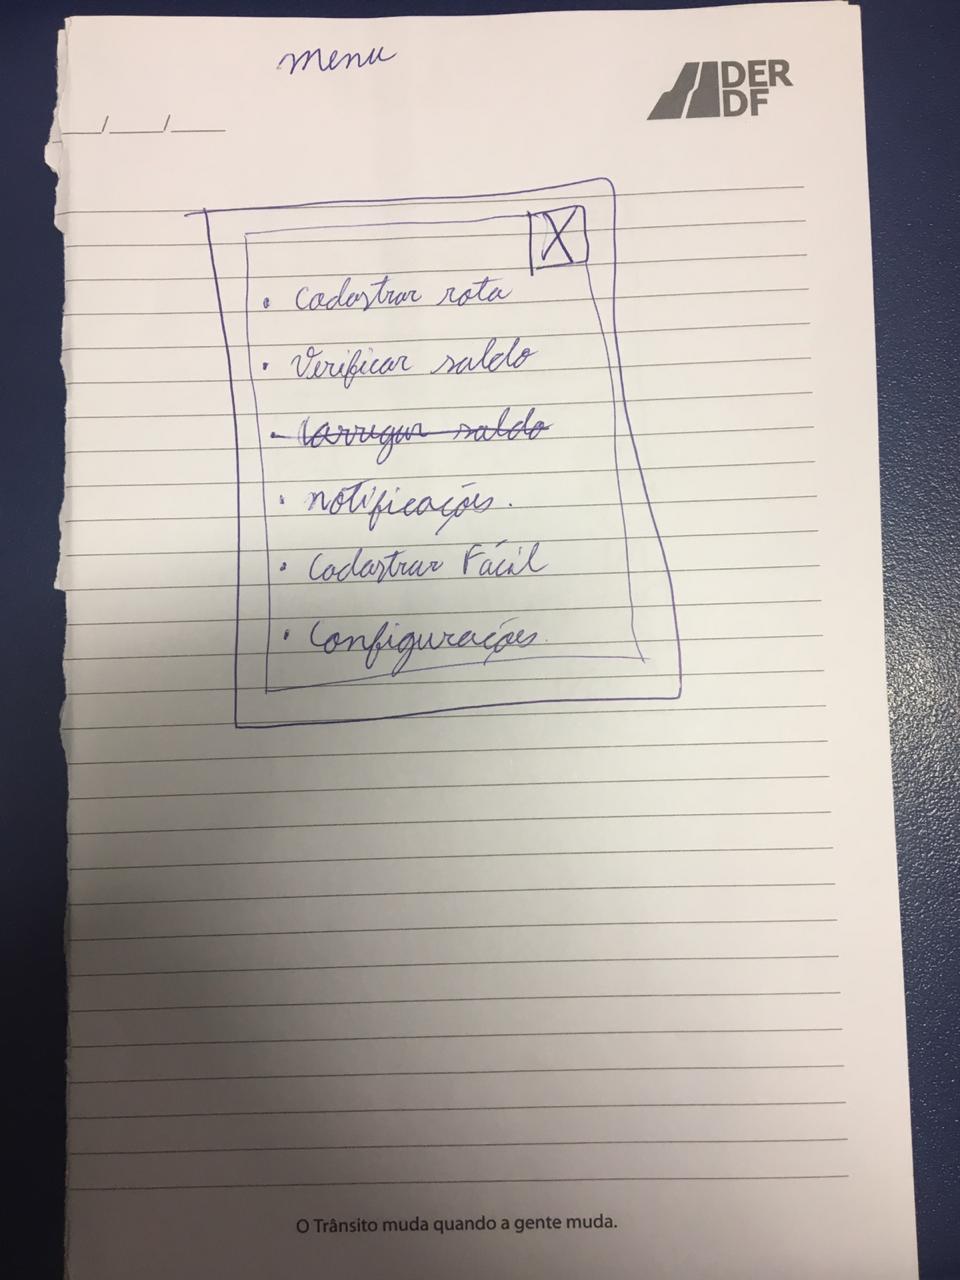 menu
DER
DF
___/___/___
X
• Cadastrar rota
• Verificar saldo
• Carregar saldo
• notificações.
• Cadastrar Fácil
• Configurações.
O Trânsito muda quando a gente muda.